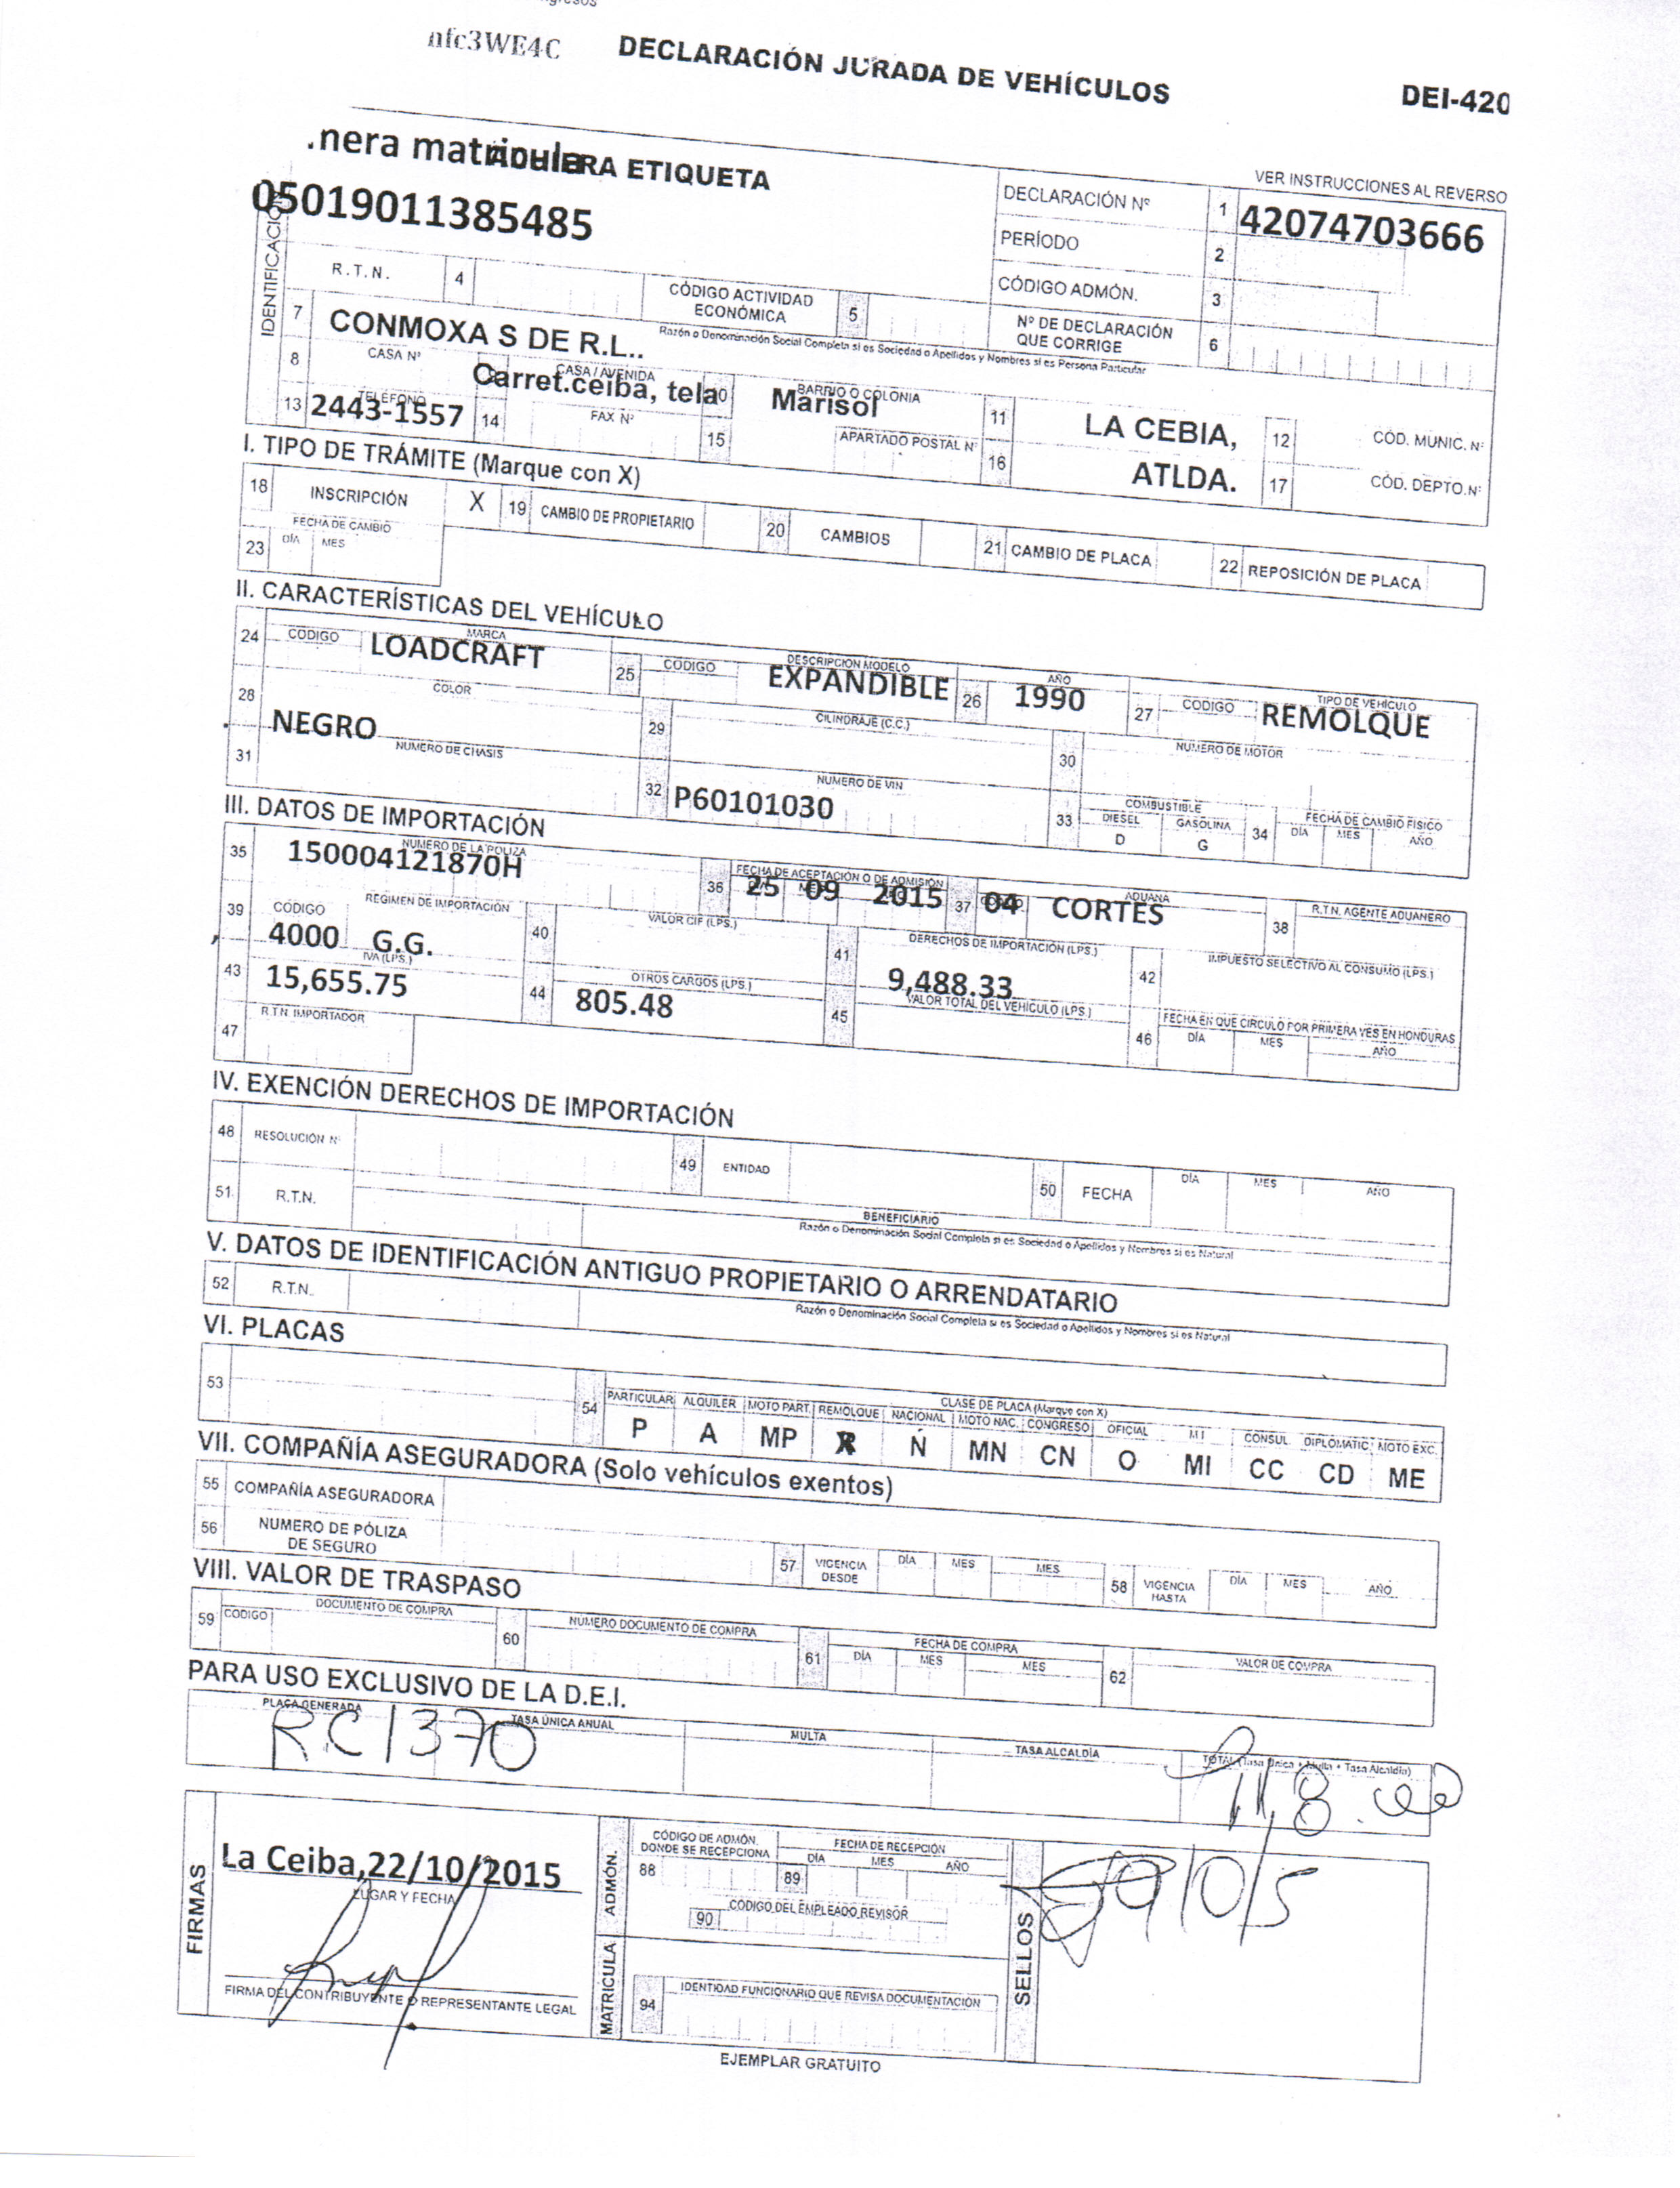 nfc3WE4C DECLARACIÓN JURADA DE VEHÍCULOS DEI-420
VER INSTRUCCIONES AL REVERSO
.nera matricula ADHIERA ETIQUETA
05019011385485
IDENTIFICACIÓN
DECLARACIÓN Nº 1 42074703666
PERÍODO 2
CÓDIGO ADMÓN. 3
R.T.N. 4 CÓDIGO ACTIVIDAD ECONÓMICA 5 Nº DE DECLARACIÓN QUE CORRIGE 6
7 CONMOXA S DE R.L..
Razón o Denominación Social Completa si es Sociedad o Apellidos y Nombres si es Persona Particular
8 CASA Nº CASA / AVENIDA Carret.ceiba, tela BARRIO O COLONIA Marisol 11 LA CEBIA, 12 CÓD. MUNIC. Nº
13 TELÉFONO 2443-1557 14 FAX Nº 15 APARTADO POSTAL Nº 16 ATLDA. 17 CÓD. DEPTO. Nº
I. TIPO DE TRÁMITE (Marque con X)
18 INSCRIPCIÓN X 19 CAMBIO DE PROPIETARIO 20 CAMBIOS 21 CAMBIO DE PLACA 22 REPOSICIÓN DE PLACA
23 FECHA DE CAMBIO DÍA MES
II. CARACTERÍSTICAS DEL VEHÍCULO
24 CÓDIGO MARCA LOADCRAFT 25 CÓDIGO DESCRIPCIÓN MODELO EXPANDIBLE 26 AÑO 1990 27 CÓDIGO TIPO DE VEHÍCULO REMOLQUE
28 COLOR NEGRO 29 CILINDRAJE (C.C.) 30 NUMERO DE MOTOR
31 NUMERO DE CHASIS 32 NUMERO DE VIN P60101030 33 COMBUSTIBLE DIESEL D GASOLINA G 34 FECHA DE CAMBIO FISICO DÍA MES AÑO
III. DATOS DE IMPORTACIÓN
35 NUMERO DE LA POLIZA 150004121870H 36 FECHA DE ACEPTACIÓN O DE ADMISIÓN 25 09 2015 37 04 ADUANA CORTES 38 R.T.N. AGENTE ADUANERO
39 CÓDIGO REGIMEN DE IMPORTACIÓN 4000 G.G. 40 VALOR CIF (LPS.) 41 DERECHOS DE IMPORTACIÓN (LPS.) 9,488.33 42 IMPUESTO SELECTIVO AL CONSUMO (LPS.)
43 IVA (LPS.) 15,655.75 44 OTROS CARGOS (LPS.) 805.48 45 VALOR TOTAL DEL VEHÍCULO (LPS.) 46 FECHA EN QUE CIRCULO POR PRIMERA VES EN HONDURAS DÍA MES AÑO
47 R.T.N. IMPORTADOR
IV. EXENCIÓN DERECHOS DE IMPORTACIÓN
48 RESOLUCIÓN Nº 49 ENTIDAD 50 FECHA DÍA MES AÑO
51 R.T.N. BENEFICIARIO
Razón o Denominación Social Completa si es Sociedad o Apellidos y Nombres si es Natural
V. DATOS DE IDENTIFICACIÓN ANTIGUO PROPIETARIO O ARRENDATARIO
52 R.T.N. Razón o Denominación Social Completa si es Sociedad o Apellidos y Nombres si es Natural
VI. PLACAS
53 54 CLASE DE PLACA (Marque con X)
PARTICULAR ALQUILER MOTO PART. REMOLQUE NACIONAL MOTO NAC. CONGRESO OFICIAL MI CONSUL DIPLOMATIC. MOTO EXC.
P A MP R N MN CN O MI CC CD ME
VII. COMPAÑÍA ASEGURADORA (Solo vehículos exentos)
55 COMPAÑÍA ASEGURADORA
56 NUMERO DE PÓLIZA DE SEGURO 57 VIGENCIA DESDE DÍA MES MES 58 VIGENCIA HASTA DÍA MES AÑO
VIII. VALOR DE TRASPASO
59 CÓDIGO DOCUMENTO DE COMPRA 60 NÚMERO DOCUMENTO DE COMPRA 61 FECHA DE COMPRA DÍA MES MES 62 VALOR DE COMPRA
PARA USO EXCLUSIVO DE LA D.E.I.
PLACA GENERADA TASA ÚNICA ANUAL MULTA TASA ALCALDÍA TOTAL (Tasa Única + Multa + Tasa Alcaldía)
RC1370
FIRMAS
La Ceiba,22/10/2015
LUGAR Y FECHA
FIRMA DEL CONTRIBUYENTE O REPRESENTANTE LEGAL
MATRICULA ADMÓN.
CÓDIGO DE ADMÓN. DONDE SE RECEPCIONA 88 FECHA DE RECEPCIÓN 89 DÍA MES AÑO
90 CÓDIGO DEL EMPLEADO REVISOR
94 IDENTIDAD FUNCIONARIO QUE REVISA DOCUMENTACIÓN
SELLOS
EJEMPLAR GRATUITO